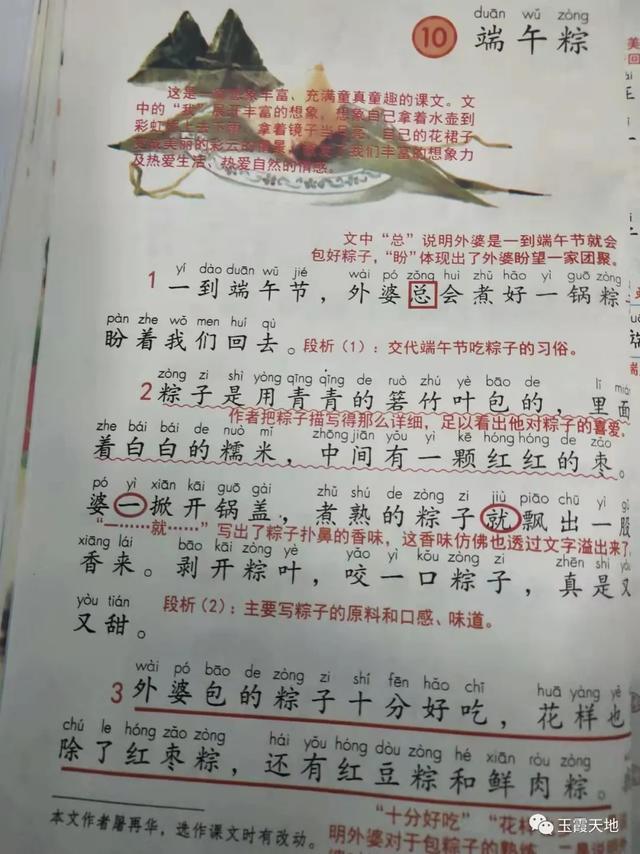 duān wǔ zòng
10 端午粽
这是一
丰富、充满童真童趣的课文。文
中的“我”展开丰富的想象，想象自己拿着水壶到
拿着镜子当
自己的花裙子
我们丰富的想象力
及热爱生活、热爱自然的情感。
文中“总”说明外婆是一到端午节就会
包好粽子，“盼”体现出了外婆盼望一家团聚。
yí dào duān wǔ jié wài pó zǒng huì zhǔ hǎo yì guō zòng
1 一到端午节，外婆总会煮好一锅粽
pàn zhe wǒ men huí qù
盼着我们回去。段析（1）：交代端午节吃粽子的习俗。
zòng zi shì yòng qīng qīng de ruò zhú yè bāo de lǐ miàn
2 粽子是用青青的箬竹叶包的，里面
作者把粽子描写得那么详细，足以看出他对粽子的喜爱。
zhe bái bái de nuò mǐ zhōng jiān yǒu yì kē hóng hóng de zǎo
着白白的糯米，中间有一颗红红的枣。
pó yì xiān kāi guō gài zhǔ shú de zòng zi jiù piāo chū yì gǔ
婆一掀开锅盖，煮熟的粽子就飘出一股
“一……就……”写出了粽子扑鼻的香味，这香味仿佛也透过文字溢出来了
xiāng lái bāo kāi zòng yè yǎo yì kǒu zòng zi zhēn shì yòu
香来。剥开粽叶，咬一口粽子，真是又
yòu tián
又甜。 段析（2）：主要写粽子的原料和口感、味道。
wài pó bāo de zòng zi shí fēn hǎo chī huā yàng yě
3 外婆包的粽子十分好吃，花样也
chú le hóng zǎo zòng hái yǒu hóng dòu zòng hé xiān ròu zòng
除了红枣粽，还有红豆粽和鲜肉粽。
本文作者屠再华，选作课文时有改动。
“十分好吃”“花样
明外婆对于包粽子的熟练
玉霞天地